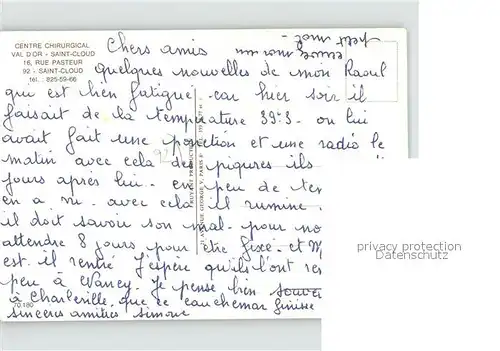 CENTRE CHIRURGICAL
VAL D'OR - SAINT-CLOUD
16, RUE PASTEUR
92 - SAINT-CLOUD
tél. : 825-59-66
Chers amis
petit mot
quelques nouvelles de mon Raoul
qui est bien fatigué - car hier soir il
faisait de la température 39°3 - on lui
avait fait une ponction et une radio le
matin avec cela des piqures ils
jours après lui - en peu de
en a vu - avec cela il rumine -
il doit savoir son mal - pour
attendre 8 jours pour être fixé - et
est - il rentré J'espère qu'ils l'ont
peu à Nancy. Je pense bien
à Charleville, que ce cauchemar finisse
sincères amitiés Simone
70.180
21, AV. GEORGE V, PARIS 8
privacy protection
Datenschutz